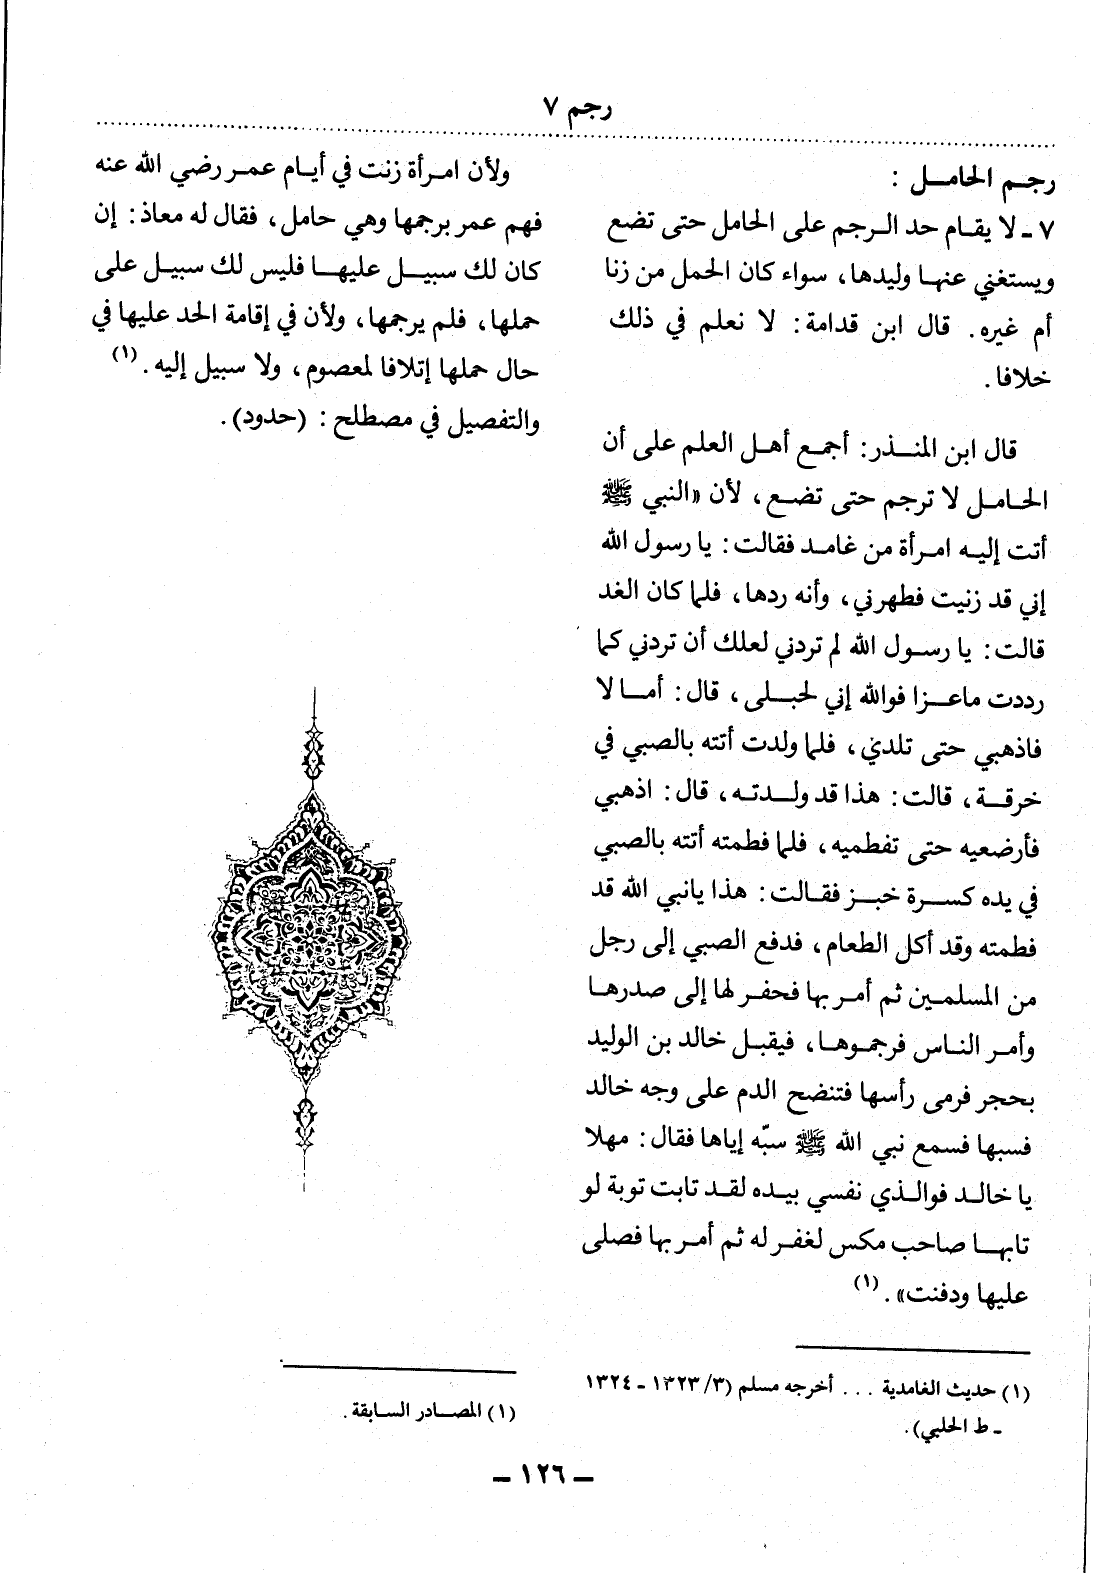 رجم ٧
رجم الحامل :
٧ ـ لا يقام حد الرجم على الحامل حتى تضع
ويستغني عنها وليدها، سواء كان الحمل من زنا
أم غيره. قال ابن قدامة: لا نعلم في ذلك
خلافا.
قال ابن المنذر: أجمع أهل العلم على أن
الحامل لا ترجم حتى تضع، لأن «النبي ﷺ
أتت إليه امرأة من غامد فقالت: يا رسول الله
إني قد زنيت فطهرني، وأنه ردها، فلما كان الغد
قالت: يا رسول الله لم تردني لعلك أن تردني كما
رددت ماعزا فوالله إني لحبلى، قال: أما لا
فاذهبي حتى تلدي، فلما ولدت أتته بالصبي في
خرقة، قالت: هذا قد ولدته، قال: اذهبي
فأرضعيه حتى تفطميه، فلما فطمته أتته بالصبي
في يده كسرة خبز فقالت: هذا يانبي الله قد
فطمته وقد أكل الطعام، فدفع الصبي إلى رجل
من المسلمين ثم أمر بها فحفر لها إلى صدرها
وأمر الناس فرجموها، فيقبل خالد بن الوليد
بحجر فرمى رأسها فتنضح الدم على وجه خالد
فسبها فسمع نبي الله ﷺ سبّه إياها فقال: مهلا
يا خالد فوالذي نفسي بيده لقد تابت توبة لو
تابها صاحب مكس لغفر له ثم أمر بها فصلى
عليها ودفنت».(١)
(١) حديث الغامدية ... أخرجه مسلم (٣/ ١٣٢٣ ـ ١٣٢٤
ـ ط الحلبي).
ولأن امرأة زنت في أيام عمر رضي الله عنه
فهم عمر برجمها وهي حامل، فقال له معاذ: إن
كان لك سبيل عليها فليس لك سبيل على
حملها، فلم يرجمها، ولأن في إقامة الحد عليها في
حال حملها إتلافا لمعصوم، ولا سبيل إليه.(١)
والتفصيل في مصطلح: (حدود).
(١) المصادر السابقة.
ـ ١٢٦ ـ